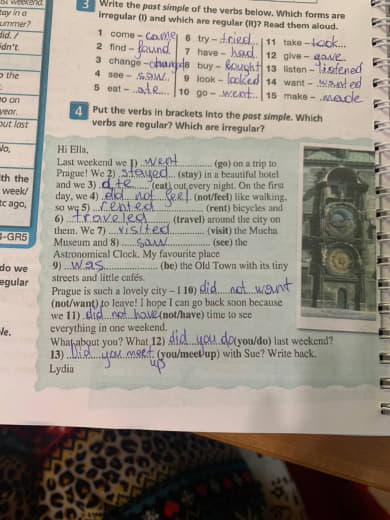 st weekend.
tay in a
ummer?
did. /
idn't.
o the
o on
year.
out last
No,
ith the
week/
tc ago,
4-GR5
do we
egular
le.
3 Write the past simple of the verbs below. Which forms are
irregular (I) and which are regular (R)? Read them aloud.
1 come – came 6 try – tried 11 take – took
2 find – found 7 have – had 12 give – gave
3 change – changed 8 buy – bought 13 listen – listened
4 see – saw 9 look – looked 14 want – wanted
5 eat – ate 10 go – went 15 make – made
4 Put the verbs in brackets into the past simple. Which
verbs are regular? Which are irregular?
Hi Ella,
Last weekend we 1) went (go) on a trip to
Prague! We 2) stayed (stay) in a beautiful hotel
and we 3) ate (eat) out every night. On the first
day, we 4) did not feel (not/feel) like walking,
so we 5) rented (rent) bicycles and
6) traveled (travel) around the city on
them. We 7) visited (visit) the Mucha
Museum and 8) saw (see) the
Astronomical Clock. My favourite place
9) was (be) the Old Town with its tiny
streets and little cafés.
Prague is such a lovely city – I 10) did not want
(not/want) to leave! I hope I can go back soon because
we 11) did not have (not/have) time to see
everything in one weekend.
What about you? What 12) did you do (you/do) last weekend?
13) Did you meet up (you/meet up) with Sue? Write back.
Lydia